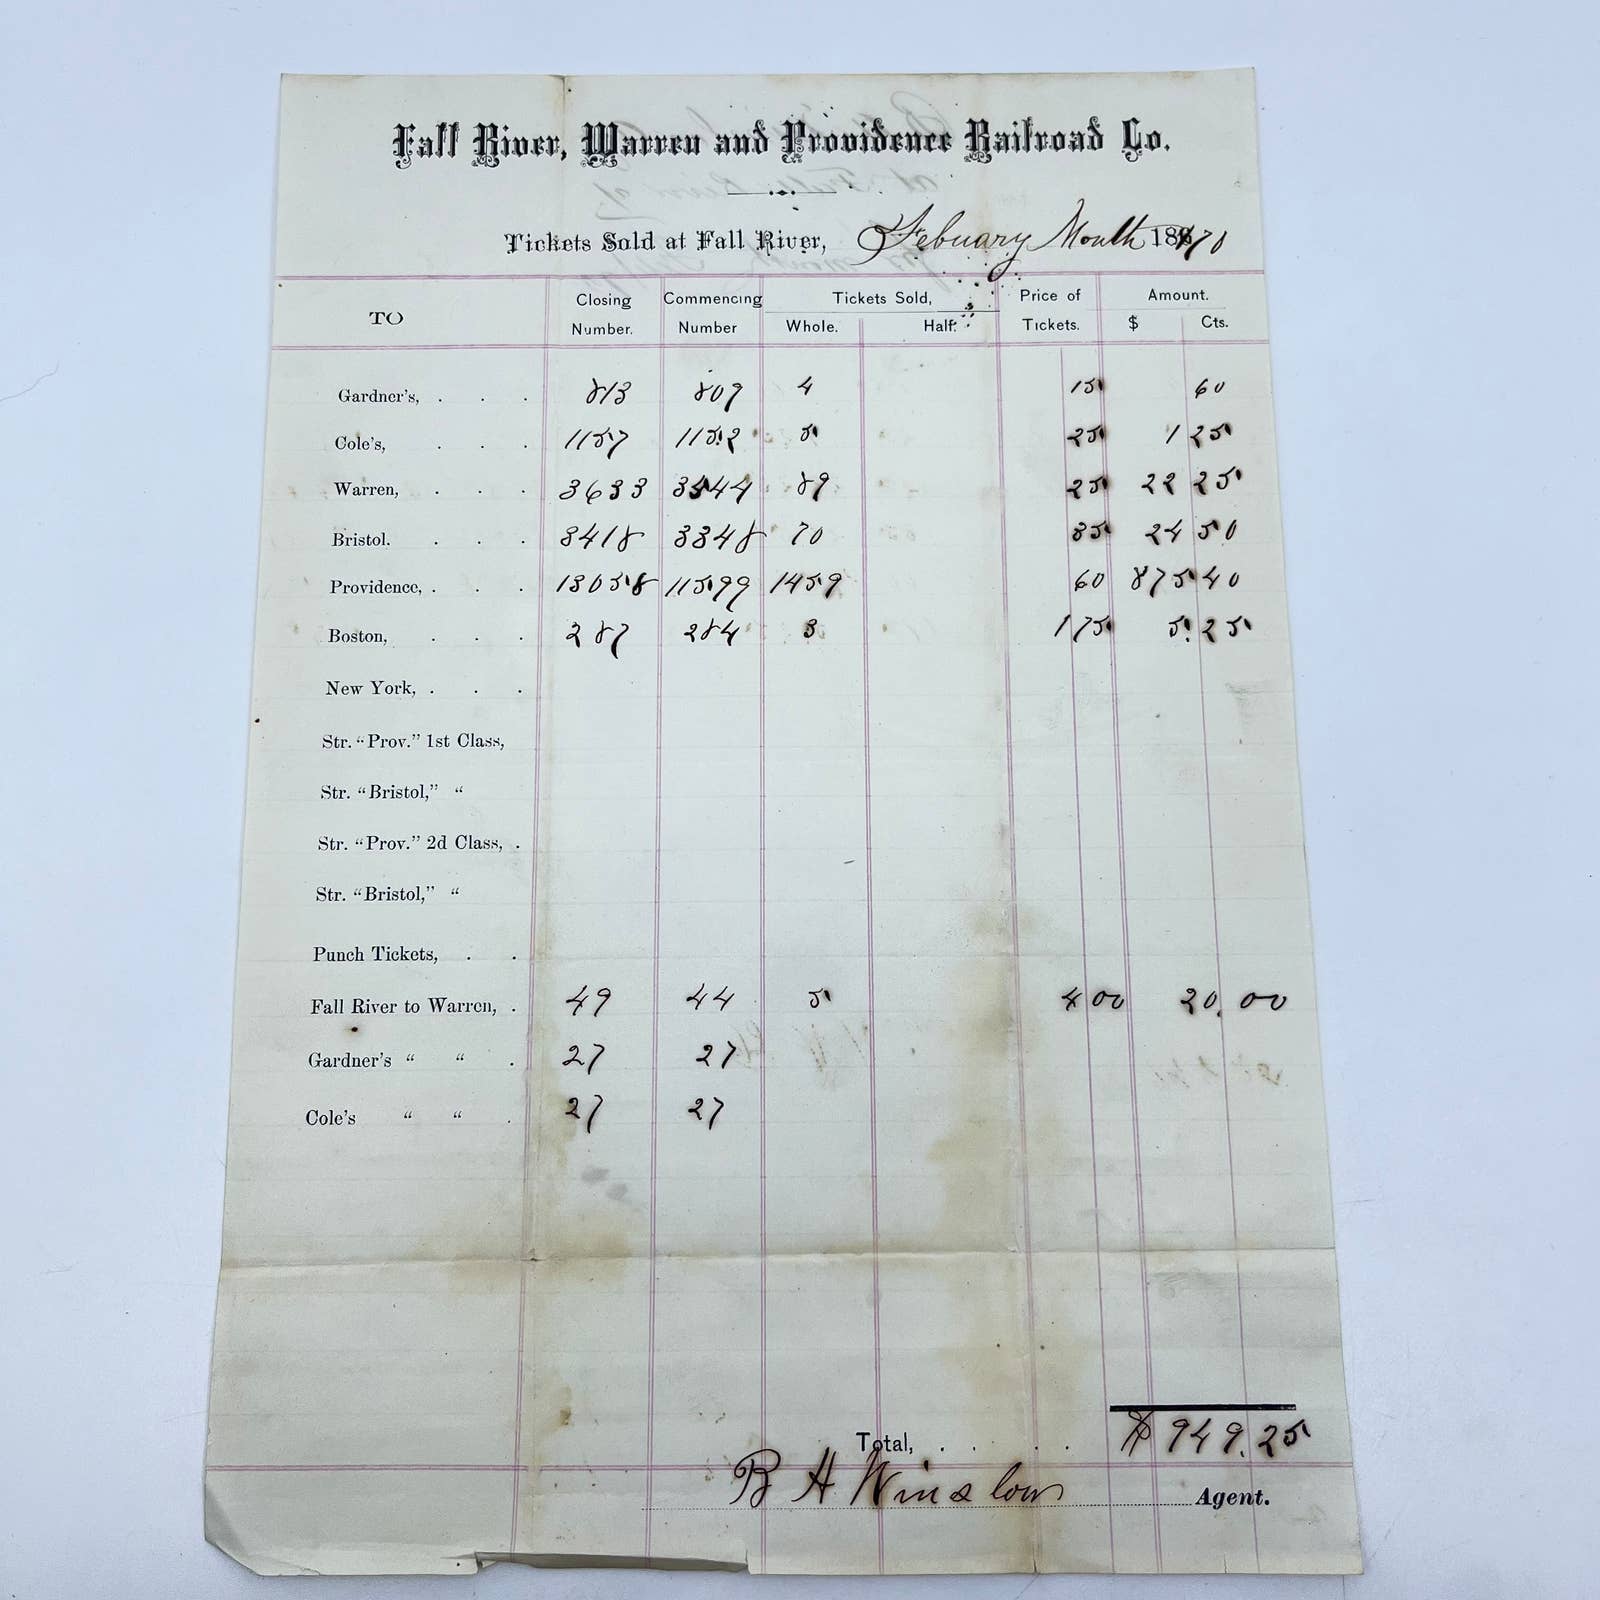 Fall River, Warren and Providence Railroad Co.
Tickets Sold at Fall River, Febuary Month 1870
TO Closing Number. Commencing Number Tickets Sold, Whole. Half. Price of Tickets. Amount. $ Cts.
Gardner's, . . . 813 809 4 15 60
Cole's, . . . 1157 1152 5 25 1 25
Warren, . . . 3633 3544 89 25 22 25
Bristol. . . . 3418 3348 70 35 24 50
Providence, . . . 13058 11599 1459 60 875 40
Boston, . . . 287 284 3 175 5.25
New York, . . .
Str. "Prov." 1st Class,
Str. "Bristol," "
Str. "Prov." 2d Class, .
Str. "Bristol," "
Punch Tickets, . .
Fall River to Warren, . 49 44 5 4 00 20.00
Gardner's " " . 27 27
Cole's " " . 27 27
Total, . . . . $949.25
B H Winslow Agent.